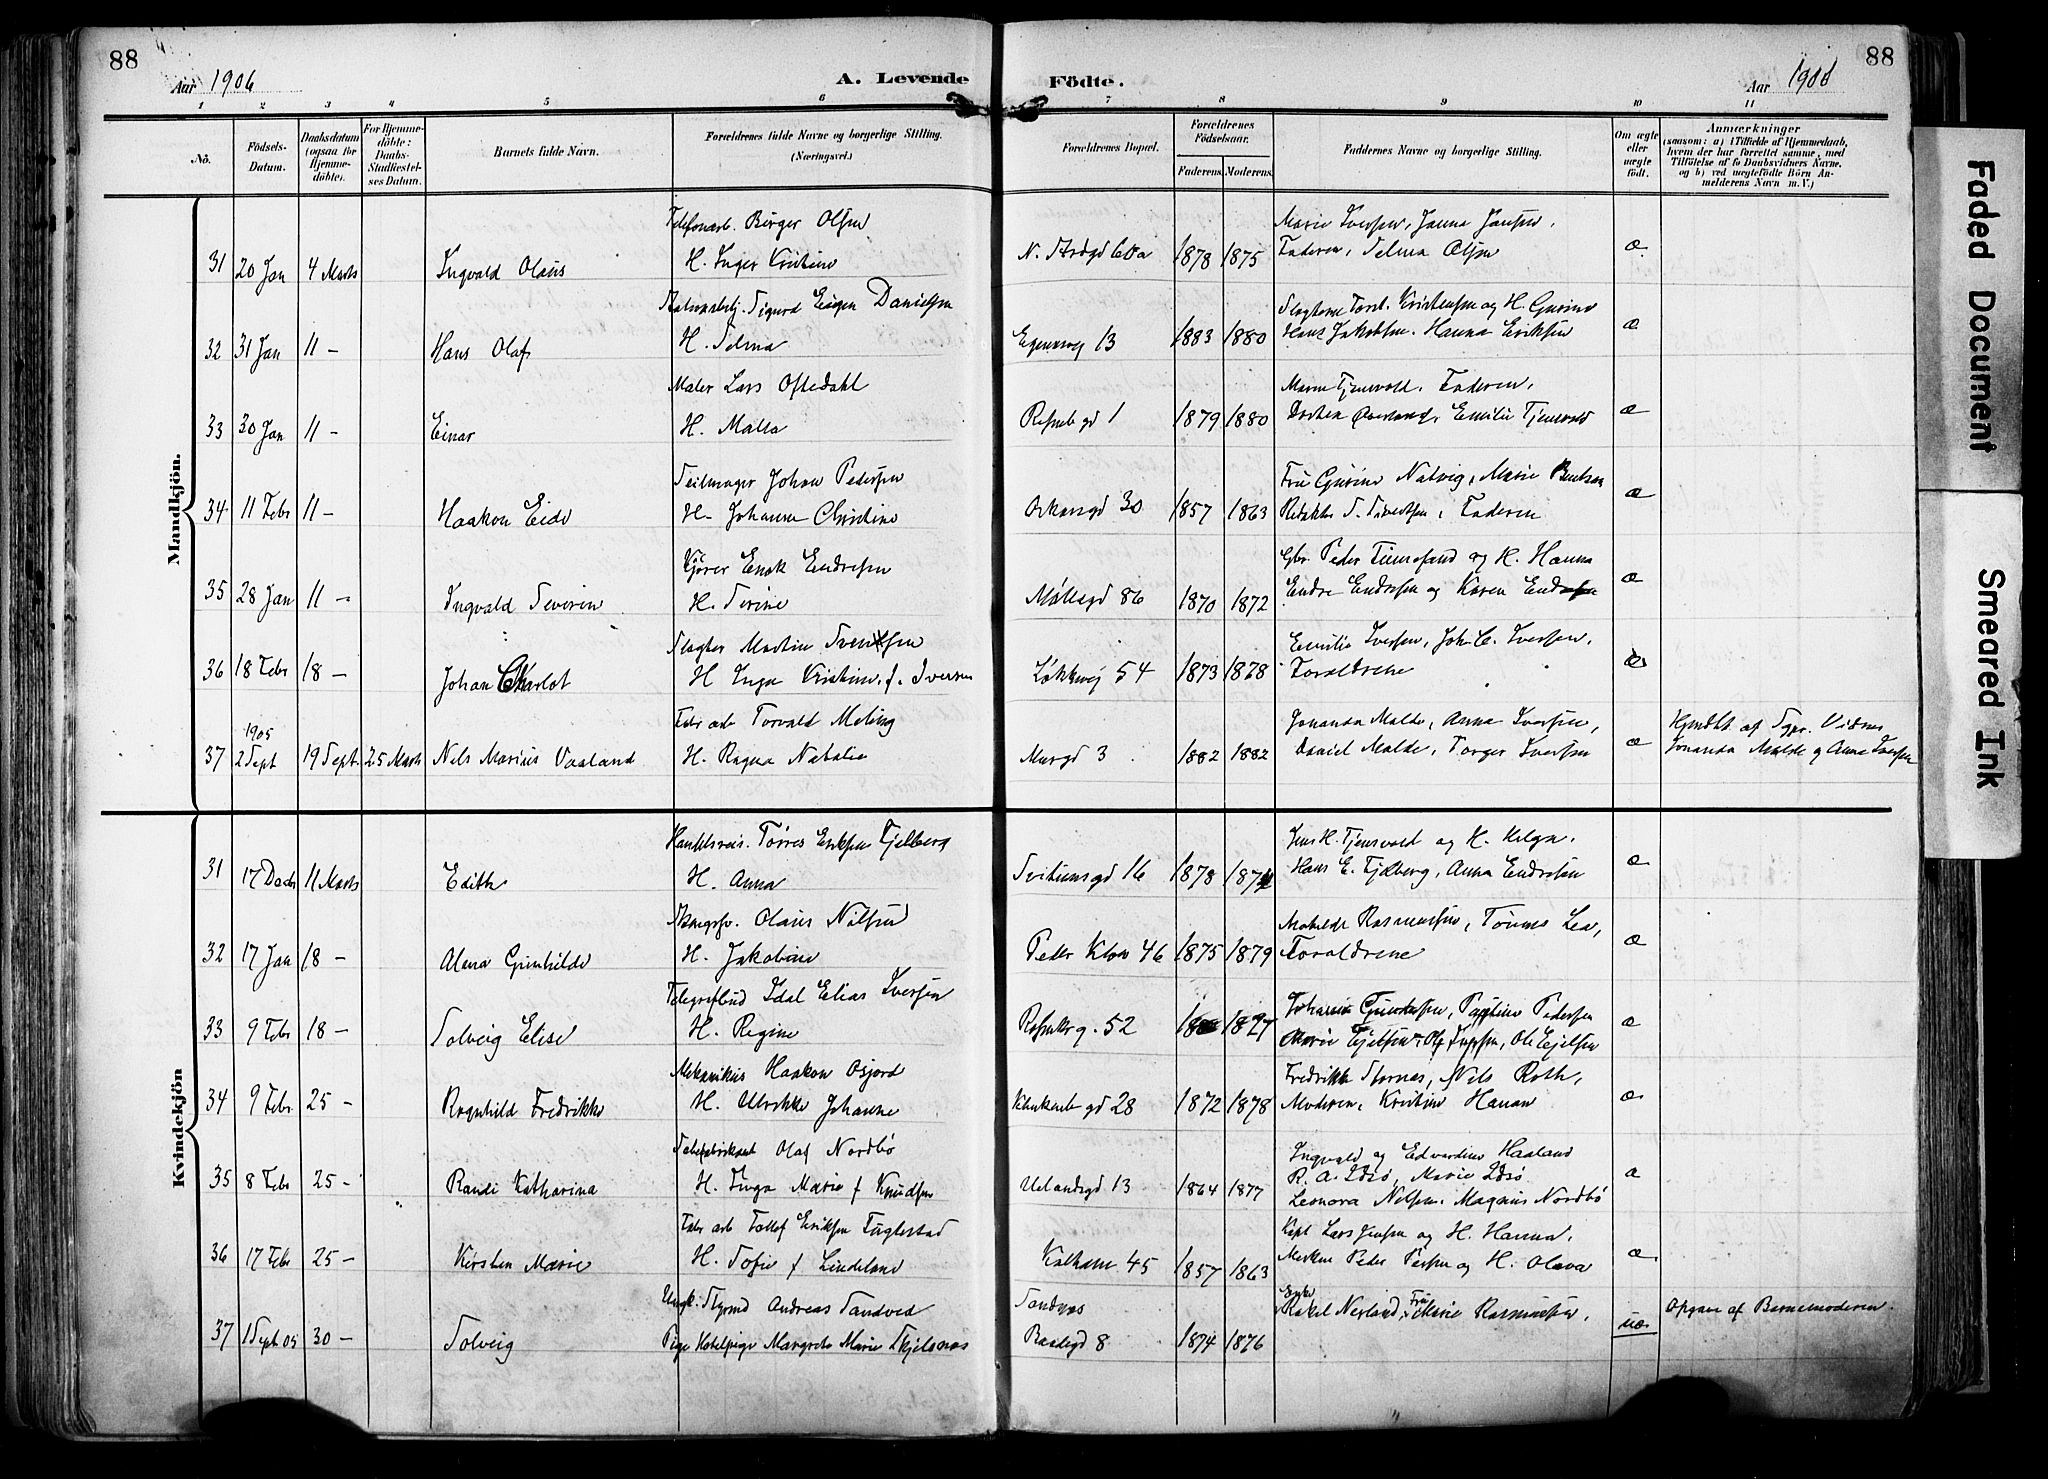 88
Aar 1906
A. Levende
Födte.
Aar 1906
88
1 2 3 4 5 6 7 8 9 10 11
No.
Födsels-Datum.
Daabsdatum (ogsaa for Hjemme-döbte).
For Hjemme-döbte: Daabs-Stadfæstel-ses Datum.
Barnets fulde Navn.
Forældrenes fulde Navne og borgerlige Stilling. (Næringsvei.)
Forældrenes Bopæl.
Forældrenes Födselsaar.
Faderens. Moderens.
Faddernes Navne og borgerlige Stilling.
Om ægte eller uægte födt.
Anmærkninger
(saasom: a) i Tilfælde af Hjemmedaab, hvem der har forrettet samme, med Tilföielse af to Daabsvidners Navne, og b) ved uægtefödte Börn An-melderens Navn m. V.)
Mandkjön.
Telefonarb. Birger Olsen Marie Iversen, Janna Jansen,
31 20 Jan 4 Marts Ingvald Olaus H. Inger Kristine N. Strdgd 60a 1878 1875 Faderen, Selma Olsen æ.
Sigurd Eugen Danielsen Kristensen og H. Gurine
32 31 Jan 11 – Hans Olaf H. Selma Egenesvej 13 1883 1880 Hans Jakobsen. Hanna Eriksen æ
Maler Lars Oftedahl Marie Tjensvold. Faderen,
33 30 Jan 11 – Einar H. Malla Refneb gd 1 1879 1880 Dorthea Emilie Tjensvold æ
Seilmager Johan Pedersen Fru Gurine Natvig, Marie Bentsen
34 11 Febr 11 – Haakon Eide H. Johanne Christine gd 30 1857 1863 Redaktör S. Sivertsen, Faderen æ
Kjörer Enok Endresen Gbr. Peder og H. Hanna
35 28 Jan 11 – Ingvald Severin H. Serine Møllegd 86 1870 1872 Endre Endresen og Karen Endresen æ
Slagter Martin Svendsen Emilie Iversen, Joh. C. Iversen,
36 18 Febr 18 – Johan Charlot H Inga Kristine f. Iversen Løkkevej 54 1873 1878 Foraldrene æ
1905 Fabr arb Torvald Meling Jonanda Malde, Anna Iversen, Hjmdbt af Vidner
37 2 Sept 19 Sept 25 Marts Nels Marius Vaaland H. Ragna Natalia Murgd 3 1882 1882 Daniel Malde, Torger Iversen æ Jonanda Malde og Anna Iversen
Kvindekjön
Handelsreis. Törres Eriksen Fjelberg Jens H. Tjensvold og H. Helga.
31 17 Decbr 11 Marts Edith H. Anna Svithunsgd 16 1878 Hans E. Fjelberg, Anna Endresen æ
Olaus Nilsen Mathilde Rasmussen, Tönnes Lea,
32 17 Jan 18 – Alma Gunhilde H. Jakobine Peder Klow 46 1875 1879 Foraldrene æ
Telegrafbud Idal Elias Iversen Pedersen
33 9 Febr 18 – Solveig Elise H. Regine Refneb g. 52 1827 Marie Ole æ
Mekanikus Haakon Osjord Fredrikke Stornæs, Nils Roth,
34 9 Febr. 25 – Ragnhild Fredrikke H. Ulrikke Johanne gd 28 1872 1878 Moderen, Kristine Hanan æ
Olaf Nordbö Ingvald og Edvardine Haaland
35 8 Febr 25 – Randi Katharina H. Inga Marie f Knudsen Uelandsgd 13 1864 1877 R. A. Idsö, Marie Idsö æ
Leonora Nilsen, Magnus Nordbö
Fabr arb Tollef Eriksen Fuglestad Kapt Lars Jensen og H. Hanna,
36 17 Febr 25 – Kirsten Marie H. Sofie f Lindeland Kalham 45 1857 1863 Peder og H. Olava æ
Ungk. Styrmd Andreas Sandved Sandnæs Enke Rakel Nerland, Fru Marie Rasmussen, Opgave af Barnemoderen.
37 1 Sept 05 30 – Solveig Pige Hotelpige Margrete Marie Skjelsnæs gd 8 1874 1876 uæ.
Faded Document
Smeared Ink